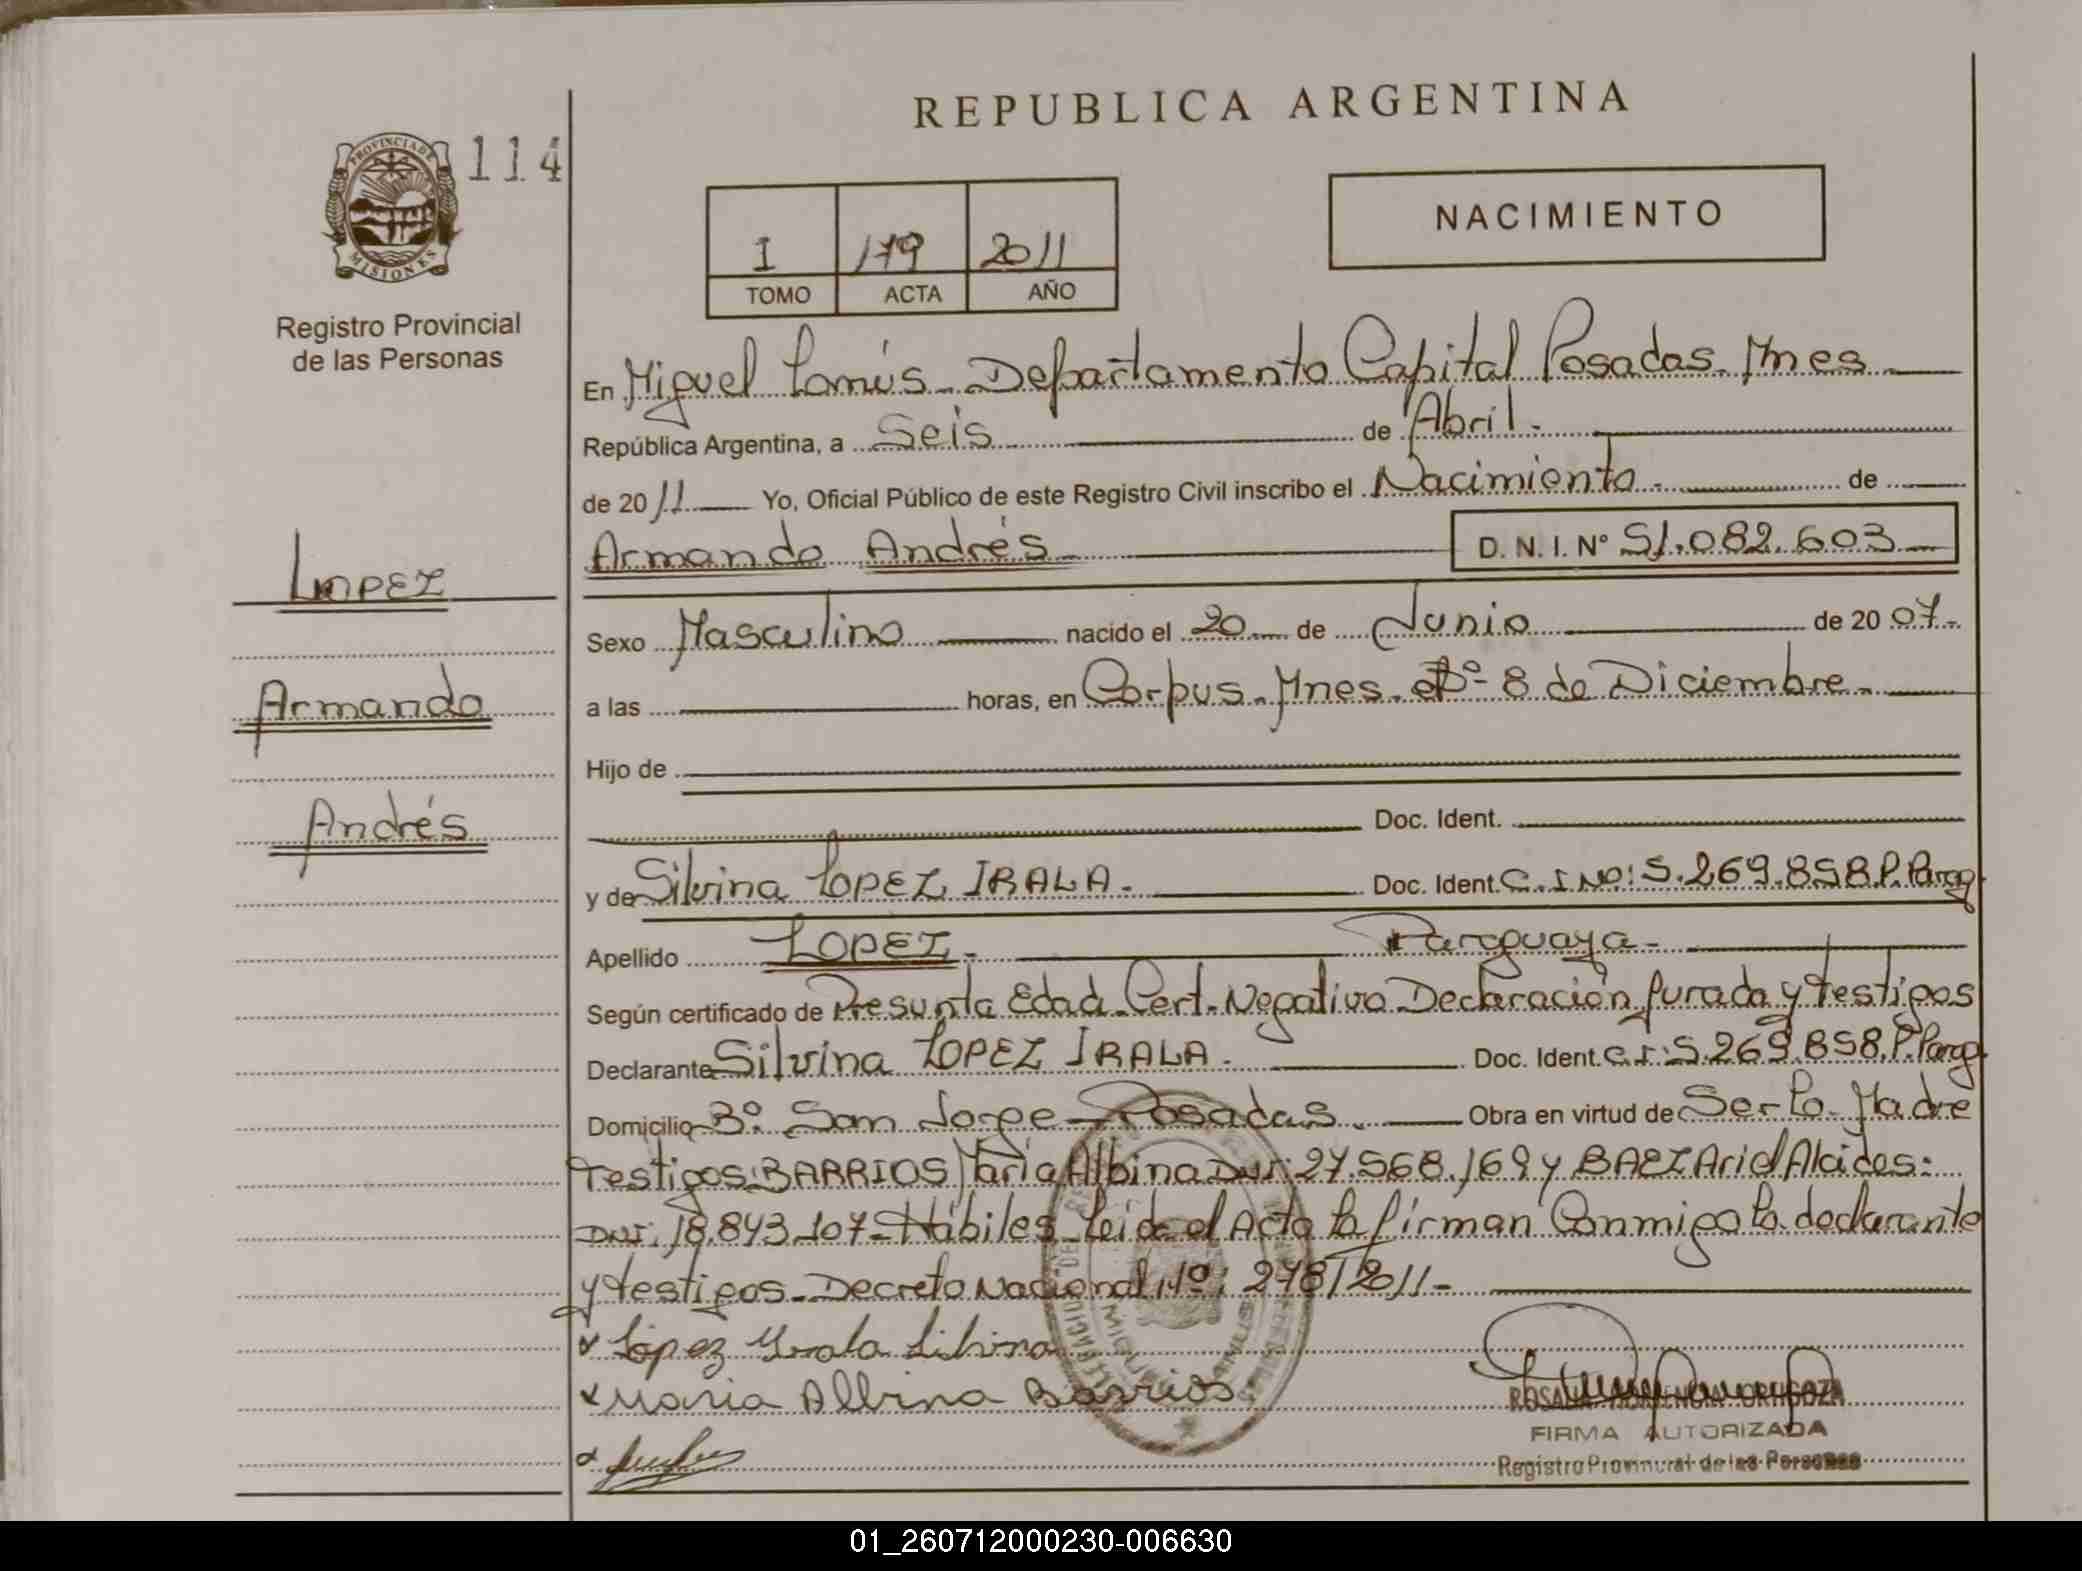 REPUBLICA ARGENTINA
PROVINCIA DE MISIONES
114
Registro Provincial
de las Personas
I 179 2011
TOMO ACTA AÑO
NACIMIENTO
En Miguel Lanús - Departamento Capital Posadas - Mnes
República Argentina, a Seis de Abril.
de 2011 Yo, Oficial Público de este Registro Civil inscribo el Nacimiento - de
Armando Andrés D. N. I. Nº 51.082.603
LOPEZ
Armando
Andrés
Sexo Masculino nacido el 20 de Junio de 2007.
a las horas, en Corpus - Mnes - 8 de Diciembre -
Hijo de
Doc. Ident.
y de Silvina LOPEZ IRALA. Doc. Ident. C.I Nº: 5.269.858.P. Parag
Apellido LOPEZ. Paraguaya -
Según certificado de Presunta Edad - Cert. Negativo Declaración Jurada y testigos
Declarante Silvina LOPEZ IRALA. Doc. Ident. C.I: 5.269.858.P. Parag
Domicilio Bº. San Jorge - Posadas. Obra en virtud de Ser La Madre
Testigos: BARRIOS María Albina DNI: 27.568.169 y BAEZ Ariel Alcides:
DNI: 18.843.107 - Hábiles - Leída el Acta la firman Conmigo la declarante
y testigos - Decreto Nacional Nº: 278/2011 -
López Yrala Silvina
Maria Albina Barrios
FIRMA AUTORIZADA
Registro Provincial de las Personas
01_260712000230-006630